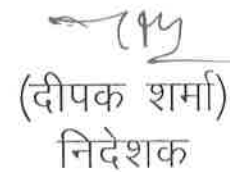 (दीपक शर्मा)
निदेशक